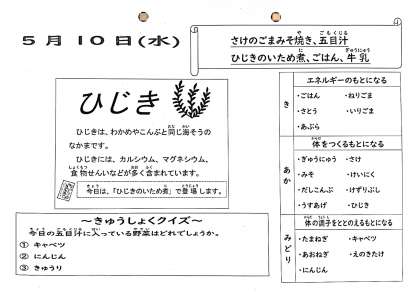 5月10日(水)
さけのごまみそ焼き、五目汁
ひじきのいため煮、ごはん、牛乳
ひじき
ひじきは、わかめやこんぶと同じ海そうの
なかまです。
ひじきには、カルシウム、マグネシウム、
食物せんいなどが多く含まれています。
今日は、「ひじきのいため煮」で登場します。
～きゅうしょくクイズ～
今日の五目汁に入っている野菜はどれでしょうか。
① キャベツ
② にんじん
③ きゅうり
き
エネルギーのもとになる
・ごはん ・ねりごま
・さとう ・いりごま
・あぶら
あか
体をつくるもとになる
・ぎゅうにゅう ・さけ
・みそ ・けいにく
・だしこんぶ ・けずりぶし
・うすあげ ・ひじき
みどり
体の調子をととのえるもとになる
・たまねぎ ・キャベツ
・あおねぎ ・えのきたけ
・にんじん